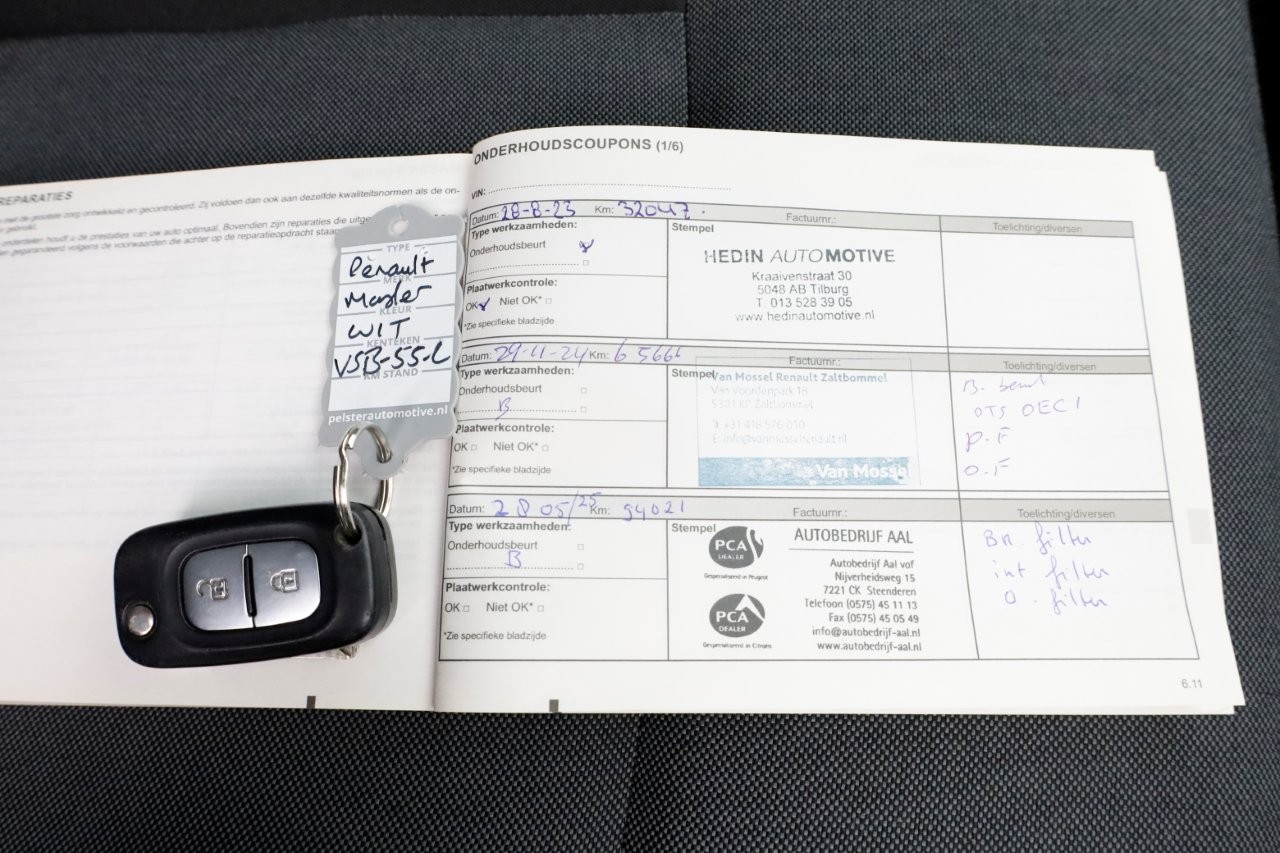 REPARATIES
met de grootste zorg ontwikkeld en gecontroleerd. Zij voldoen dan ook aan dezelfde kwaliteitsnormen als de on-
gebruikt.
onderdelen houdt u de prestaties van uw auto optimaal. Bovendien zijn reparaties die uitge
gegarandeerd volgens de voorwaarden die achter op de reparatieopdracht staan
TYPE
Renault
MERK
Master
KLEUR
WIT
KENTEKEN
VSB-55-L
KM STAND
pelsterautomotive.nl
ONDERHOUDSCOUPONS (1/6)
VIN:
Datum: 28-8-23 Km: 32047. Factuurnr.: Toelichting/diversen
Type werkzaamheden:
Onderhoudsbeurt
Plaatwerkcontrole:
OK Niet OK*
*Zie specifieke bladzijde
Stempel
HEDIN AUTOMOTIVE
Kraaivenstraat 30
5048 AB Tilburg
T. 013 528 39 05
www.hedinautomotive.nl
Datum: 29-11-24 Km: 65661 Factuurnr.: Toelichting/diversen
Type werkzaamheden:
Onderhoudsbeurt
B
Plaatwerkcontrole:
OK Niet OK*
*Zie specifieke bladzijde
Stempel
Van Mossel Renault Zaltbommel
Van Voordenpark 18
5301 KP Zaltbommel
T. +31 418 576 010
E. info@vanmosselrenault.nl
Van Mossel
B. beurt
OTS OEC1
P.F
O.F
Datum: 28 05/25 Km: 94021 Factuurnr.: Toelichting/diversen
Type werkzaamheden:
Onderhoudsbeurt
B
Plaatwerkcontrole:
OK Niet OK*
*Zie specifieke bladzijde
Stempel
PCA
DEALER
Gespecialiseerd in Peugeot
PCA
DEALER
Gespecialiseerd in Citroën
AUTOBEDRIJF AAL
Autobedrijf Aal vof
Nijverheidsweg 15
7221 CK Steenderen
Telefoon (0575) 45 11 13
Fax (0575) 45 05 49
info@autobedrijf-aal.nl
www.autobedrijf-aal.nl
Br. filter
int filter
O. filter
6.11